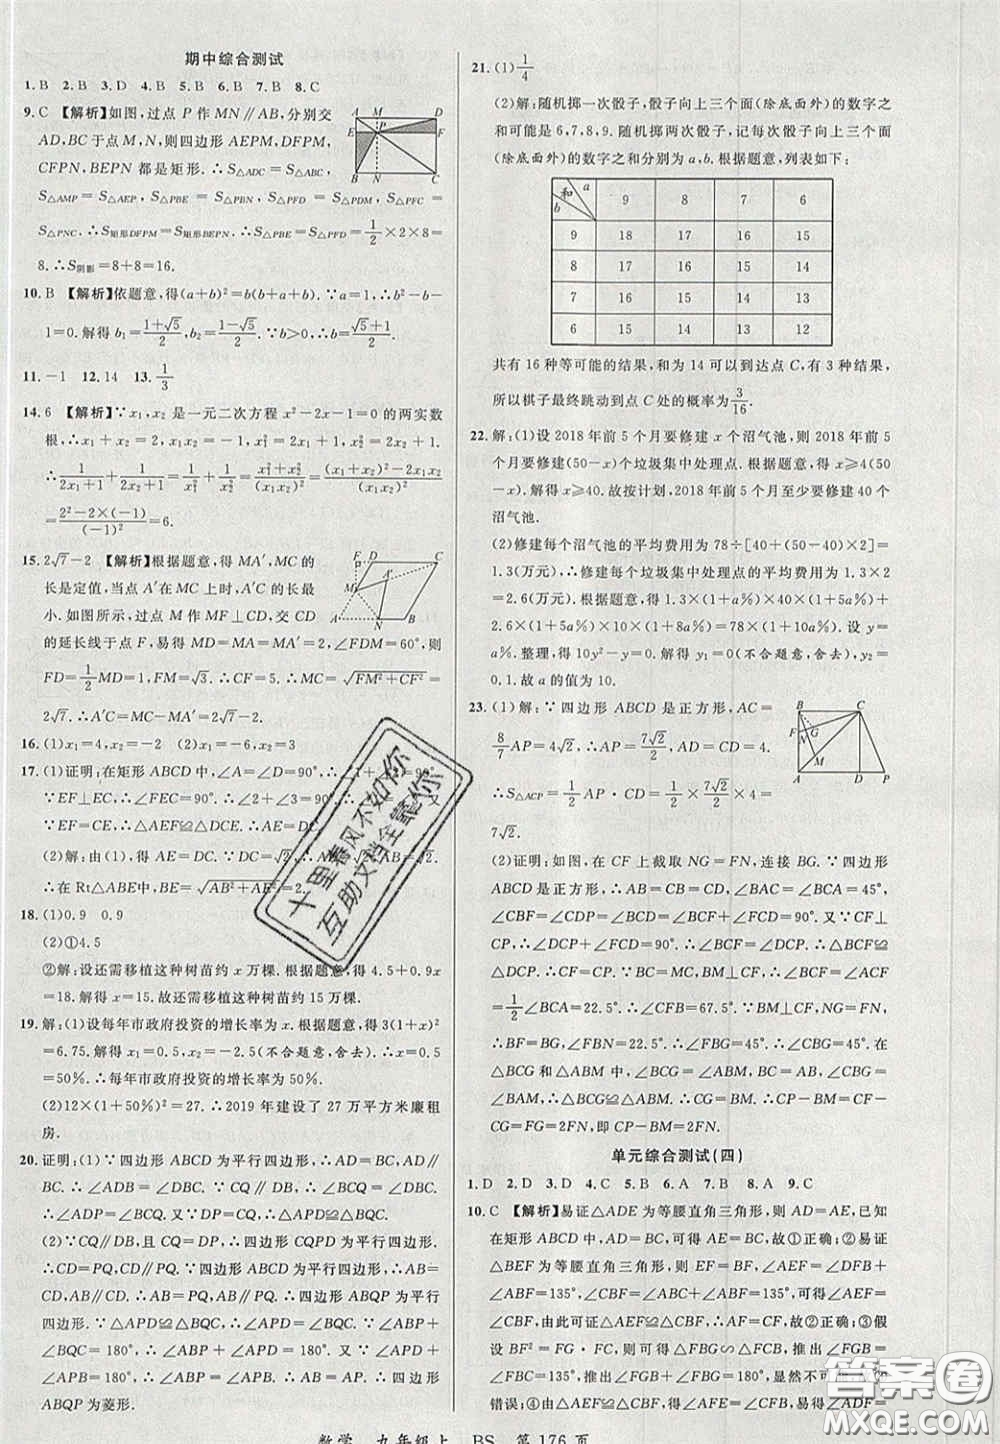 期中综合测试
1.B 2.B 3.D 4.B 5.B 6.B 7.B 8.C
9.C 【解析】如图,过点 P 作 MN∥AB,分别交
AD,BC于点M,N,则四边形 AEPM,DFPM,
CFPN,BEPN 都是矩形.∴S△ADC=S△ABC,
S△AMP=S△AEP,S△PBE=S△PBN,S△PFD=S△PDM,S△PFC
=S△PNC.∴S矩形DFPM=S矩形BEPN.∴S△PBE=S△PFD=1/2×2×8=
8.∴S阴影=8+8=16.
10.B 【解析】依题意,得(a+b)²=b(b+a+b).∵a=1,∴b²-b-
1=0.解得b₁=(1+√5)/2,b₂=(1-√5)/2.∵b>0,∴b=(√5+1)/2.
11.-1 12.14 13.1/3
14.6 【解析】∵x₁,x₂ 是一元二次方程 x²-2x-1=0 的两实数
根,∴x₁+x₂=2,x₁x₂=-1,x₁²=2x₁+1,x₂²=2x₂+1.∴
1/(2x₁+1)+1/(2x₂+1)=1/x₁²+1/x₂²=(x₁²+x₂²)/(x₁x₂)²=((x₁+x₂)²-2x₁x₂)/(x₁x₂)²
=(2²-2×(-1))/(-1)²=6.
15.2√7-2 【解析】根据题意,得 MA′,MC 的
长是定值,当点 A′在 MC 上时,A′C 的长最
小.如图所示,过点 M 作 MF⊥CD,交 CD
的延长线于点 F,易得 MD=MA=MA′=2,∠FDM=60°,则
FD=1/2MD=1,FM=√3.∴CF=5.∴MC=√(FM²+CF²)=
2√7.∴A′C=MC-MA′=2√7-2.
16.(1)x₁=4,x₂=-2 (2)x₁=2,x₂=4
17.(1)证明:在矩形 ABCD 中,∠A=∠D=90°,
∵EF⊥EC,∴∠FEC=90°.
∵EF=CE,∴△AEF≌△DCE.∴AE=DC.
(2)解:由(1),得 AE=DC.∵DC=√2,
∴在 Rt△ABE中,BE=√(AB²+AE²)=
18.(1)0.9 0.9
(2)①4.5
②解:设还需移植这种树苗约 x 万棵.根据题意,得 4.5+0.9x
=18.解得 x=15.故还需移植这种树苗约 15 万棵.
19.解:(1)设每年市政府投资的增长率为 x.根据题意,得 3(1+x)²
=6.75.解得 x₁=0.5,x₂=-2.5(不合题意,舍去).∴x=0.5
=50%.∴每年市政府投资的增长率为 50%.
(2)12×(1+50%)²=27.∴2019 年建设了 27 万平方米廉租
房.
20.证明:(1)∵四边形 ABCD 为平行四边形,∴AD=BC,AD∥
BC.∴∠ADB=∠DBC.∵CQ∥DB,∴∠BCQ=∠DBC.
∴∠ADP=∠BCQ.又∵DP=CQ,∴△ADP≌△BCQ.
(2)∵CQ∥DB,且CQ=DP,∴四边形 CQPD 为平行四边形.
∴CD=PQ,CD∥PQ.∵四边形 ABCD 为平行四边形,∴AB=
CD,AB∥CD.∴AB=PQ,AB∥PQ.∴四边形 ABQP 为平行
四边形.∵△APD≌△BQC,∴∠APD=∠BQC.∵∠APD+
∠APB=180°,∴∠APB+∠BQC=180°.∴四边形
ABQP 为菱形.
21.(1)1/4
(2)解:随机掷一次骰子,骰子向上三个面(除底面外)的数字之
和可能是 6,7,8,9.随机掷两次骰子,记每次骰子向上三个面
(除底面外)的数字之和分别为 a,b.根据题意,列表如下:
和 a b 9 8 7 6
9 18 17 16 15
8 17 16 15 14
7 16 15 14 13
6 15 14 13 12
共有 16 种等可能的结果,和为 14 可以到达点 C,有 3 种结果,
所以棋子最终跳动到点 C 处的概率为3/16.
22.解:(1)设 2018 年前 5 个月要修建 x 个沼气池,则 2018 年前 5
个月要修建(50-x)个垃圾集中处理点.根据题意,得 x≥4(50
-x).解得 x≥40.故按计划,2018 年前 5 个月至少要修建 40 个
沼气池.
(2)修建每个沼气池的平均费用为 78÷[40+(50-40)×2]=
1.3(万元),∴修建每个垃圾集中处理点的平均费用为 1.3×2
=2.6(万元).根据题意,得 1.3×(1+a%)×40×(1+5a%)+
2.6×(1+5a%)×10×(1+8a%)=78×(1+10a%).设 y=
a%.整理,得 10y²-y=0.解得 y₁=0(不合题意,舍去),y₂=
0.1.故 a 的值为 10.
23.(1)解:∵四边形 ABCD 是正方形,AC=
8/7AP=4√2,∴AP=7√2/2,CD=4.
∴S△ACP=1/2AP·CD=1/2×7√2/2×4=
7√2.
(2)证明:如图,在 CF 上截取 NG=FN,连接 BG.∵四边形
ABCD 是正方形,∴AB=CB,∠BCA=∠BAC=45°,
∠CBF=∠CDP=90°.∴∠BCF+∠CFB=90°.又∵CF⊥
CP,∴∠DCP+∠FCD=90°.∴∠BCF=∠DCP.∴△BCF≌
△DCP.∴CF=CP.∵MC=BC,BM⊥CF,∴∠BCF=∠ACF
=1/2∠BCA=22.5°.∴∠CFB=67.5°.∵BM⊥CF,NG=FN,
∴BF=BG,∠FBN=22.5°.∴∠FBG=45°.∴∠CBG=45°.
在△BCG与△ABM中,∵∠BCG=∠ABM,BC=AB,∠CBG
=∠BAM,∴△BCG≌△ABM.∴BM=CG.∴CP-BM=CF-
CG=FG=2FN,即 CP-BM=2FN.
单元综合测试(四)
1.D 2.D 3.D 4.C 5.C 6.A 7.B 8.A 9.C
10.C 【解析】易证△ADE为等腰直角三角形,则 AD=AE,已知
在矩形 ABCD 中,AD=BC,则 AE=BC,故①正确;②易证
△BEF 为等腰直角三角形,则 EF=BF,∠FEB=∠FBE=
45°,∴∠AEF=∠CBF=135°.又∵AE=BC,∴△AEF≌
△CBF,故②正确;③假
设 BF²=FG·FC,则△FBG∽△FCB,推出∠FBG
,显然不可能,故③
错误;④
数学 九年级上 BS 第 176 页
十里春风不如你
互助文档全靠你
答案圈
MXQE.COM